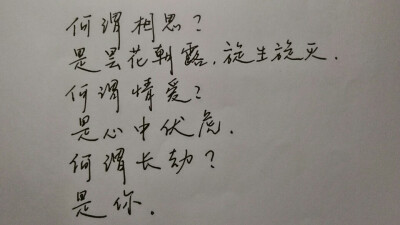 何谓相思？
是昙花朝露，旋生旋灭.
何谓情爱？
是心中伏虎.
何谓长劫？
是你.